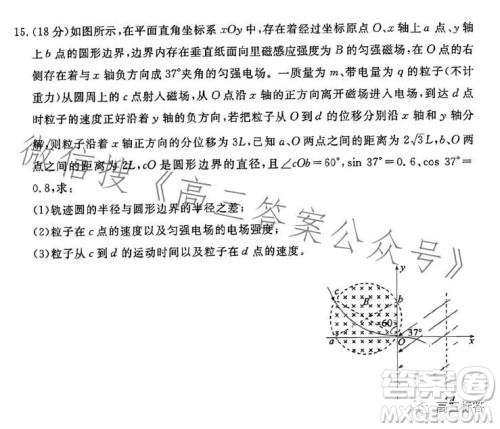 15.(18分)如图所示,在平面直角坐标系xOy中,存在着经过坐标原点O、x轴上a点、y轴
上b点的圆形边界,边界内存在垂直纸面向里磁感应强度为B的匀强磁场,在O点的右
侧存在着与x轴负方向成37°夹角的匀强电场。一质量为m、带电量为q的粒子(不计
重力)从圆周上的c点射入磁场,从O点沿着x轴的正方向离开磁场进入电场,到达d点
时粒子的速度正好沿着y轴的负方向,若把粒子从O到d的位移分别沿x轴和y轴分
解,则粒子沿着x轴正方向的分位移为3L,已知a、O两点之间的距离为2√3L,b、O两
点之间的距离为2L,cO是圆形边界的直径,且∠cOb=60°,sin 37°=0.6,cos 37°=
0.8,求:
(1)轨迹圆的半径与圆形边界的半径之差;
(2)粒子在c点的速度以及匀强电场的电场强度;
(3)粒子从c到d的运动时间以及粒子在d点的速度。
y
c
B
b
60°
37°
a
O
x
d
微信搜《高三答案公众号》
答案圈
高三标答
MXQE.COM